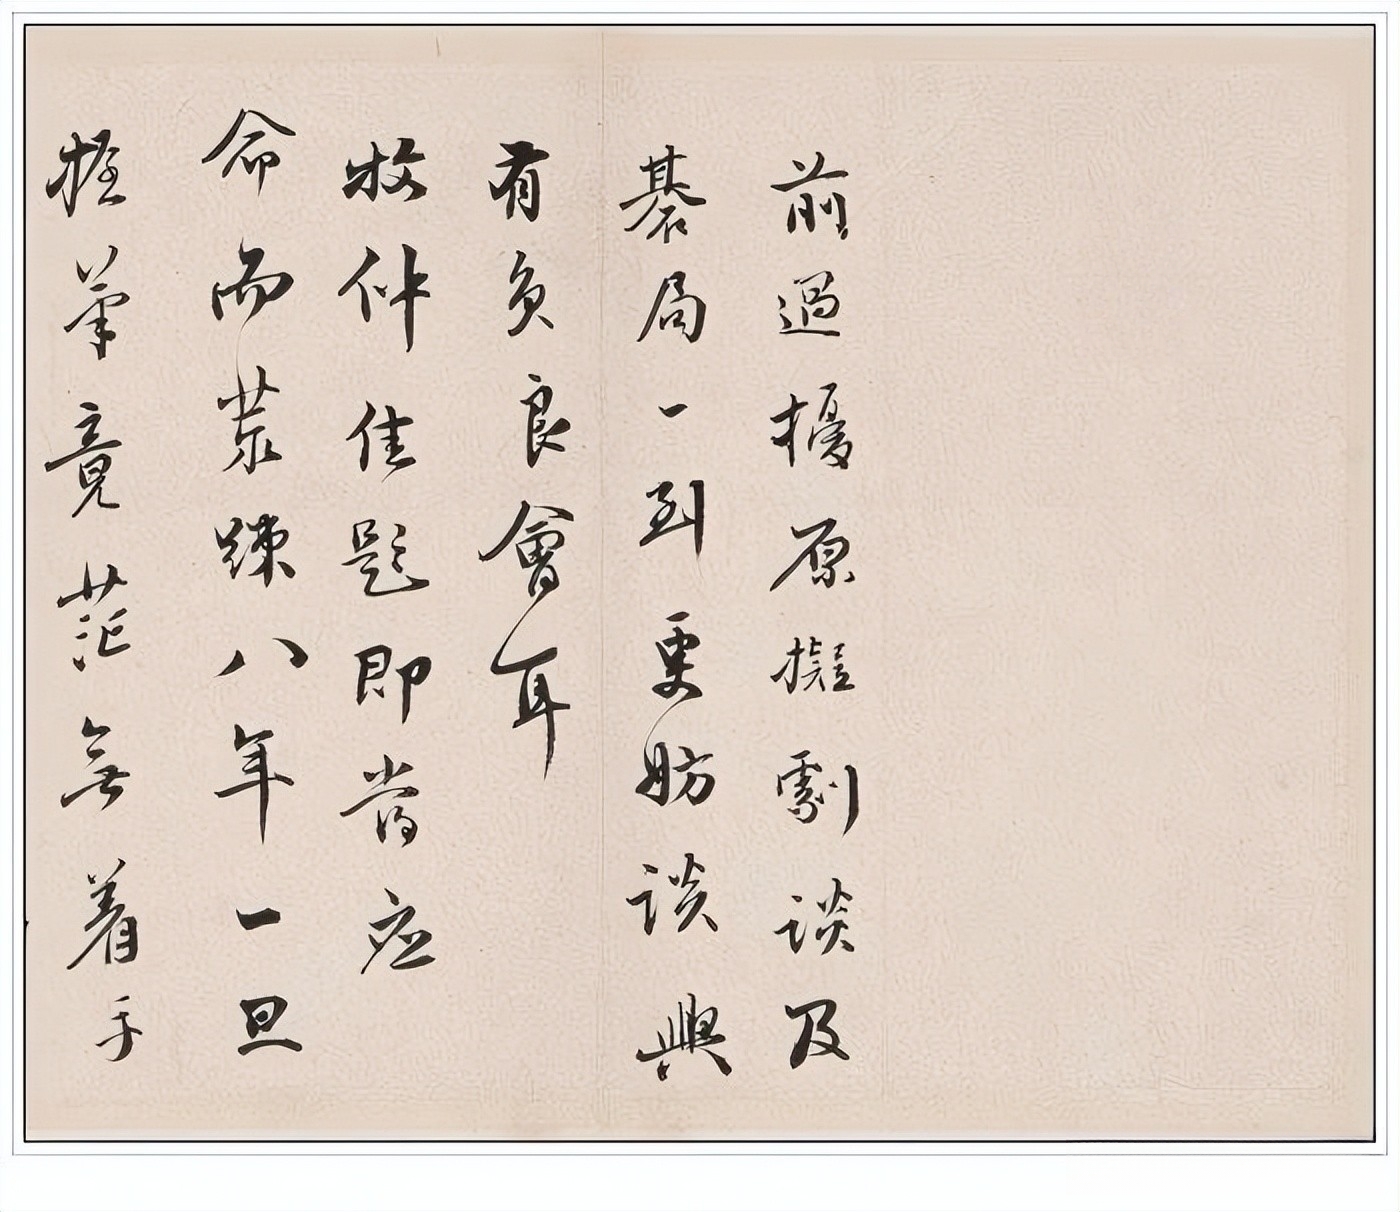 前過擾原擬劇談及
碁局一到更妨談興
有負良會耳
牧仲佳題即當应
命而荒疎八年一旦
握筆竟茫無着手